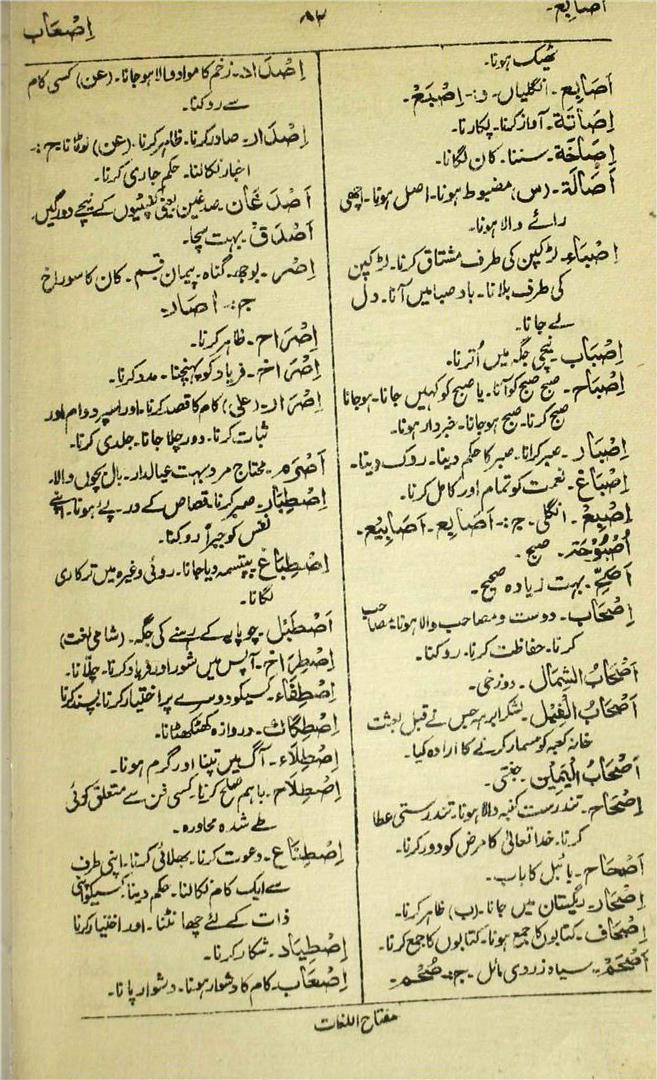 اصابع۔
۵۳
اِصْعَاب
ٹھیک ہونا۔
اَصَابِع۔ انگلیاں۔ و:۔ اِصْبَع۔
اِصَاتَة۔ آواز کرنا۔ پکارنا۔
اِصَاخَة۔ سننا۔ کان لگانا۔
اَصَالَة۔ (س) مضبوط ہونا۔ اصل ہونا۔ اچھی
رائے والا ہونا۔
اِصْبَاء۔ لڑکپن کی طرف مشتاق کرنا۔ لڑکپن
کی طرف بلانا۔ باد صبا میں آنا۔ دل
لے جانا۔
اِصْبَاب۔ نیچی جگہ میں اُترنا۔
اِصْبَاح۔ صبح صبح کو آنا۔ یا صبح کو کہیں جانا۔ ہوجانا
صبح کرنا۔ صبح ہوجانا۔ خبردار ہونا۔
اِصْبَار۔ صبر کرانا۔ صبر کا حکم دینا۔ روک دینا۔
اِصْبَاغ۔ نعمت کو تمام اور کامل کرنا۔
اِصْبِع۔ انگلی۔ ج:۔ اَصَابِع۔ اَصَابِيع۔
اُصْبُوْحَة۔ صبح۔
اَصَحّ۔ بہت زیادہ صحیح۔
اِصْحَاب۔ دوست و مصاحب والا ہونا۔ مصاحب
کرنا۔ حفاظت کرنا۔ روکنا۔
اَصْحَابُ الشِّمَال۔ دوزخی۔
اَصْحَابُ الْفِيْل۔ لشکر ابرہہ جس نے قبل بعثت
خانہ کعبہ کو مسمار کرنے کا ارادہ کیا۔
اَصْحَابُ الْيَمِيْن۔ جنتی۔
اِصْحَاح۔ تندرست کنبہ والا ہونا۔ تندرستی عطا
کرنا۔ خدا تعالیٰ کا مرض کو دور کرنا۔
اَصْحَاح۔ بائبل کا باب۔
اِصْحَار۔ ریگستان میں جانا۔ (ب) ظاہر کرنا۔
اِصْحَاف۔ کتابوں کا جمع ہونا۔ کتابوں کا جمع کرنا۔
اَصْحَم۔ سیاہ زردی مائل۔ ج:۔ صُحْم۔
اِصْدَاد۔ زخم کا مواد والا ہوجانا۔ (عن) کسی کام
سے روکنا۔
اِصْدَار۔ صادر کرنا۔ ظاہر کرنا۔ (عن) لوٹانا ج:۔
اخبار نکالنا۔ حکم جاری کرنا۔
اَصْدَغَان۔ صدغین یعنی کنپٹیوں کے نیچے دو رگیں۔
اَصْدَق۔ بہت سچا۔
اِصْر۔ بوجھ۔ گناہ۔ پیمان قسم۔ کان کا سوراخ
ج:۔ اٰصار۔
اِصْرَاح۔ ظاہر کرنا۔
اِصْرَاخ۔ فریاد کو پہنچنا۔ مدد کرنا۔
اِصْرَار۔ (علیٰ) کام کا قصد کرنا۔ اور اسپر دوام اور
ثبات کرنا۔ دور چلا جانا۔ جلدی کرنا۔
اَصْرَم۔ محتاج مرد بہت عیالدار۔ بال بچوں والا۔
اِصْطِبَار۔ صبر کرنا۔ قصاص کے در پے ہونا۔ اپنے
نفس کو جبراً روکنا۔
اِصْطِبَاغ۔ بپتسمہ دیا جانا۔ روٹی وغیرہ میں ترکاری
لگانا۔
اَصْطَبْل۔ چوپایہ کے رہنے کی جگہ۔ (شامی لغت)
اِصْطِرَاخ۔ آپس میں شور اور فریاد کرنا۔ چلّانا۔
اِصْطِفَاء۔ کسیکو دوسرے پر اختیار کرنا۔ پسند کرنا
اِصْطِكَاك۔ دروازہ کھٹکھٹانا۔
اِصْطِلَاء۔ آگ میں تپنا اور گرم ہونا۔
اِصْطِلَاح۔ باہم صلح کرنا۔ کسی فن سے متعلق کوئی
طے شدہ محاورہ۔
اِصْطِنَاع۔ دعوت کرنا۔ بھلائی کرنا۔ اپنی طرف
سے ایک کام نکالنا۔ حکم دینا۔ کسیکو اپنی
ذات کے لئے چھانٹنا۔ اور اختیار کرنا
اِصْطِيَاد۔ شکار کرنا۔
اِصْعَاب۔ کام کا دشوار ہونا۔ دشوار پانا۔
مفتاح اللغات